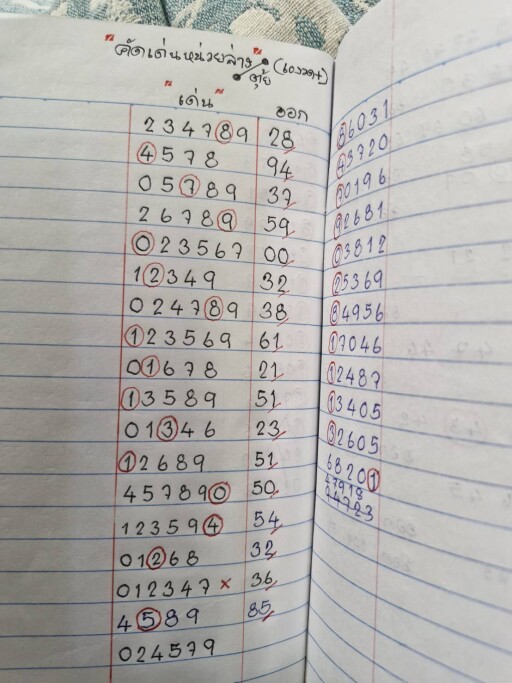 "คัดเด่นหน่วยล่าง"
"เด่น" ออก
234789 28
4578 94
05789 37
26789 59
023567 00
12349 32
024789 38
123569 61
01678 21
13589 51
01346 23
12689 51
457890 50
123594 54
01268 32
012347 × 36
4589 85
024579
86031
43720
70196
92681
03812
25369
84956
17046
12487
13405
32605
68201
47918
24723